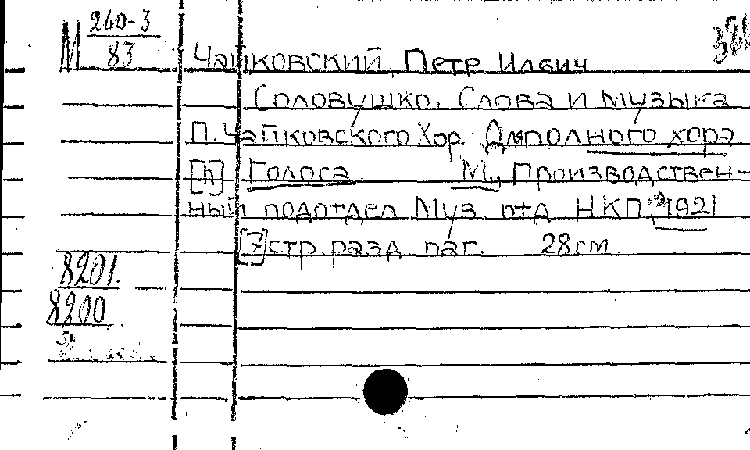 М 260-3
83
Чайковский, Петр Ильич
Соловушко. Слова и музыка
П. Чайковского Хор. Для полного хора
[н] Голоса М., Производствен-
ный подотдел Муз. отд. НКП, 1921
[7] стр. разд. паг. 28см
8201.
8200